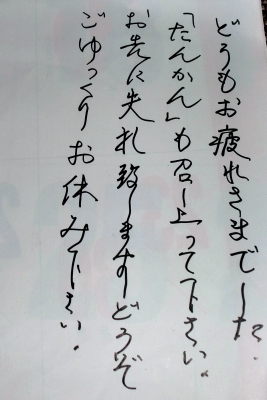 どうもお疲れさまでした.
「たんかん」も召し上って下さい。
お先に失れ致しますどうぞ
ごゆっくりお休み下さい.